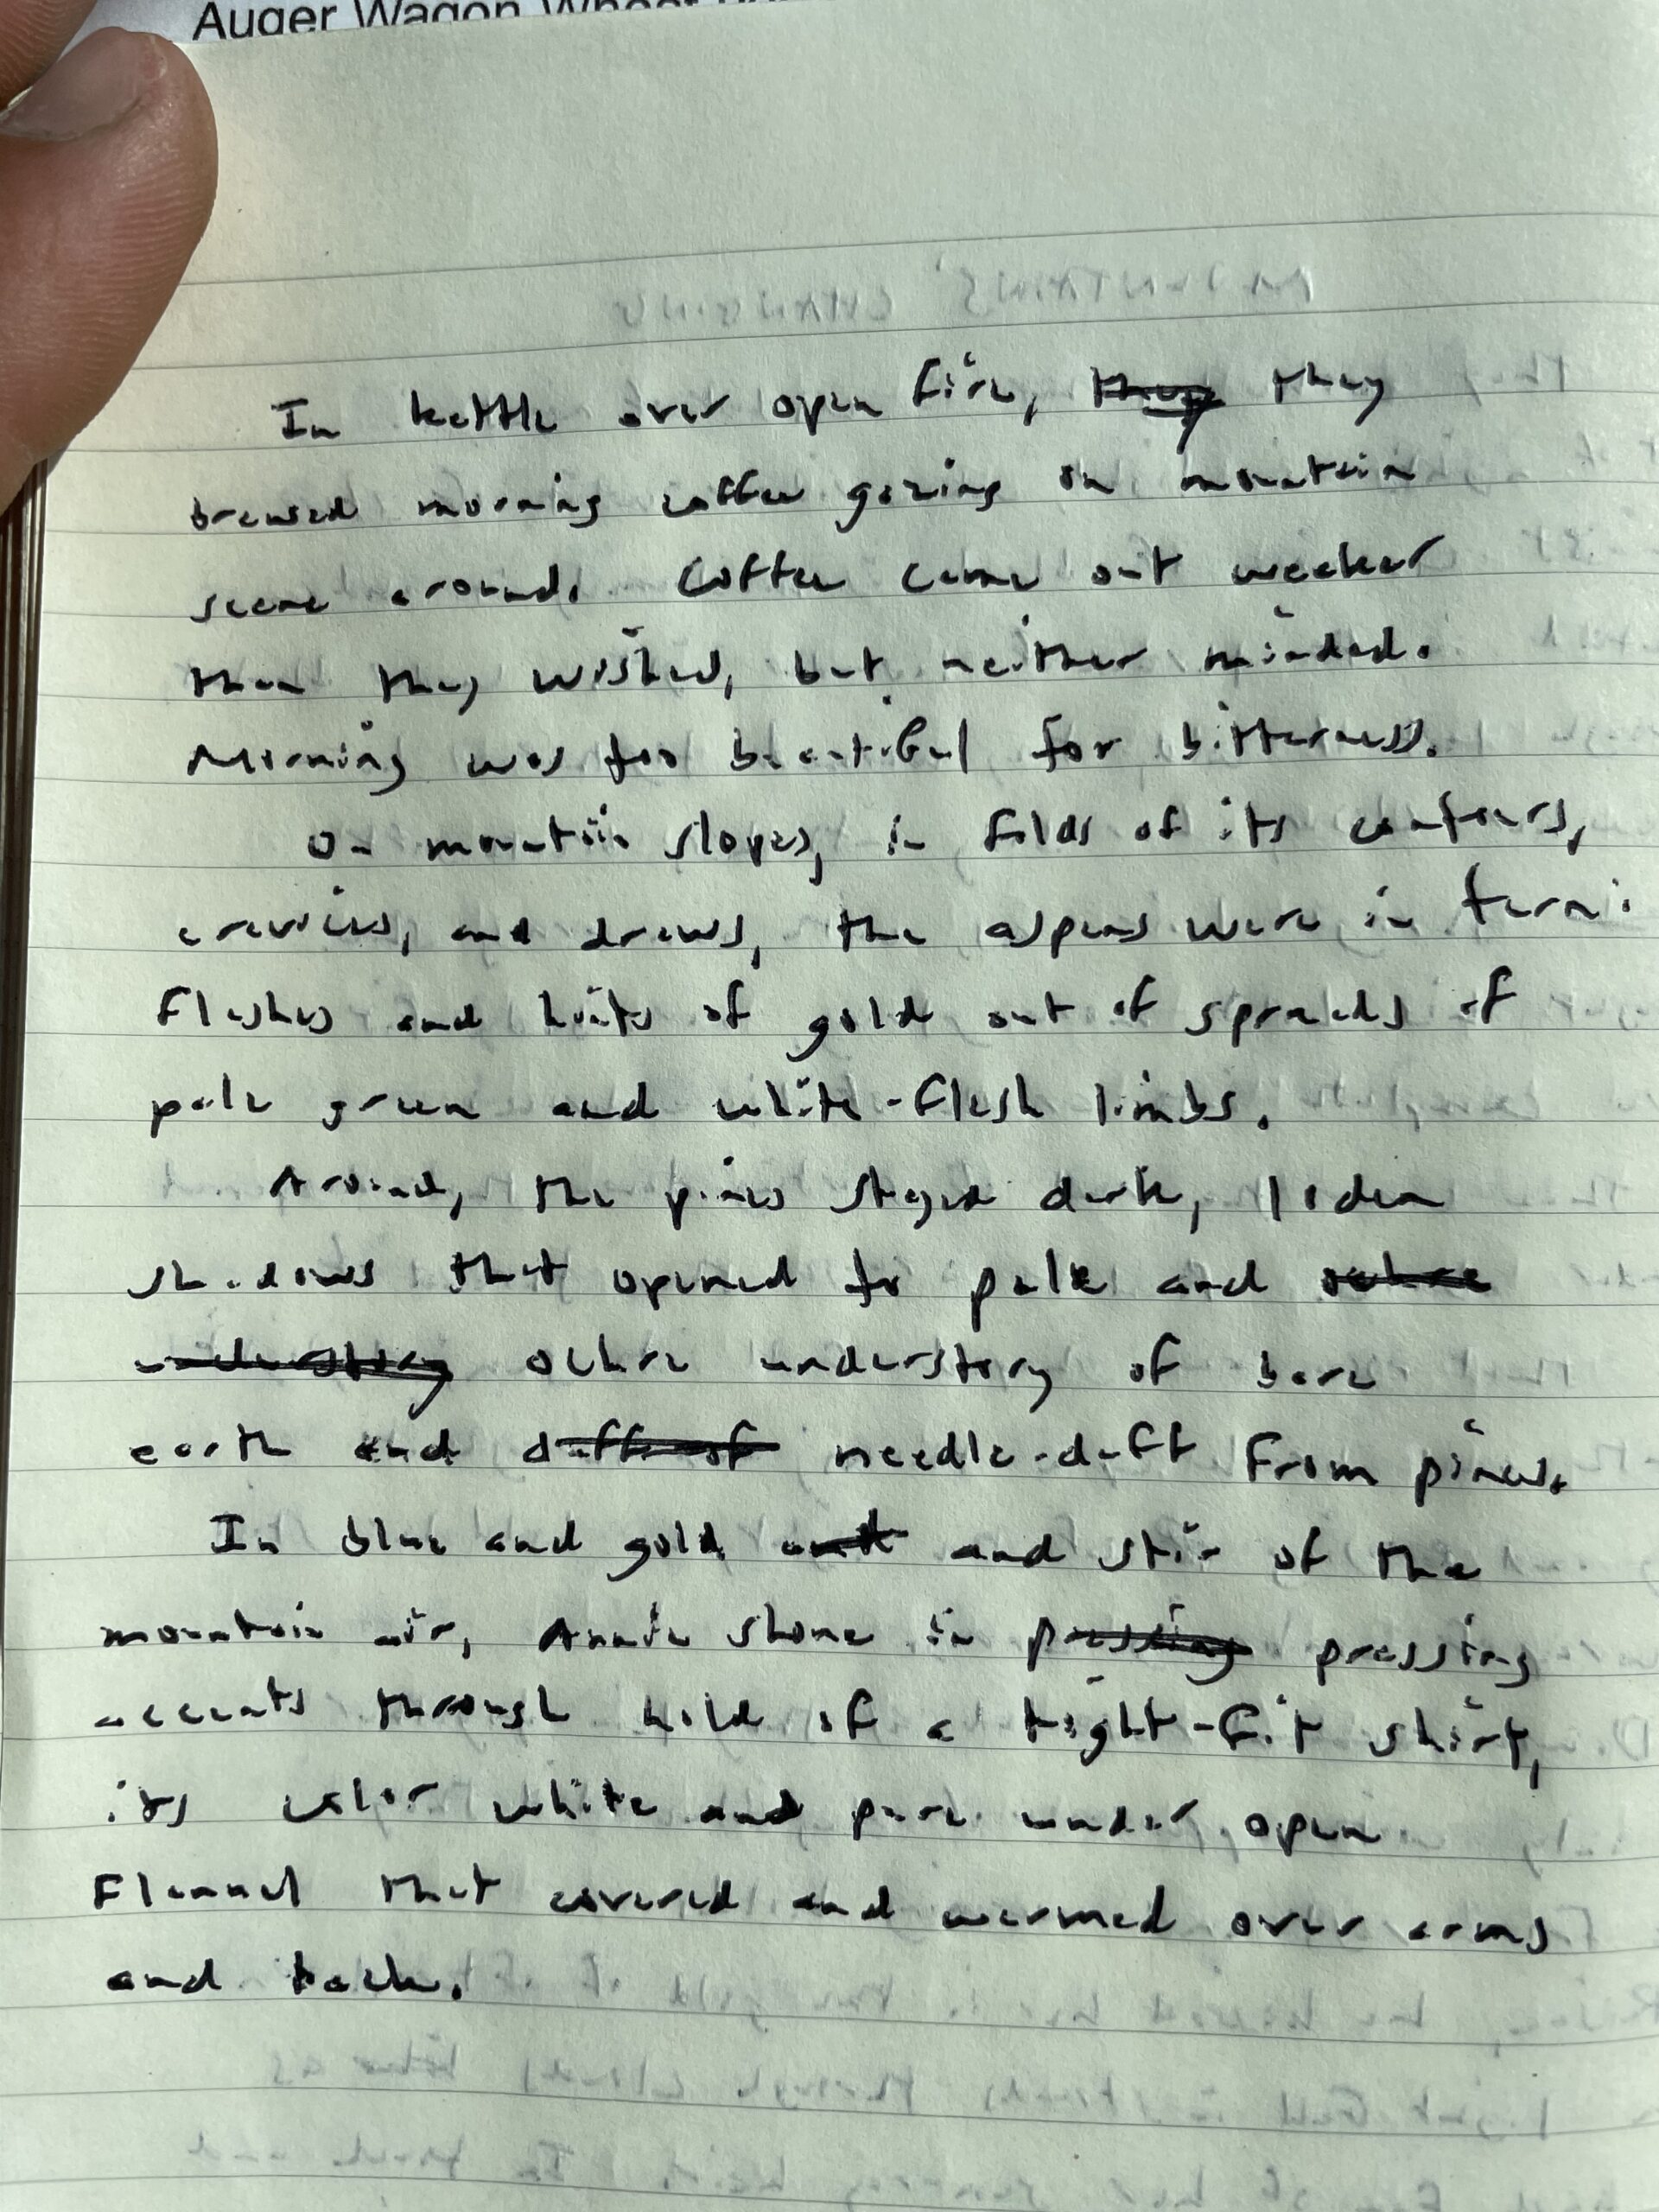 Auger Wagon Wheel
In kettle over open fire, they they
brewed morning coffee gazing on mountain
scene around. Coffee came out weaker
than they wished, but neither minded.
Morning was too beautiful for bitterness.
On mountain slopes, in folds of its contours,
crevices, and draws, the aspens were in turn:
Flashes and hints of gold out of spreads of
pale green and white-flesh limbs.
Around, the pines stayed dark, loden
shadows that opened to pale and ochre
understory ochre understory of bare
earth and duff of needle-duff from pines.
In blue and gold and and stir of the
mountain air, Annie shone in pressing pressing
accents through hold of a tight-fit shirt,
its color white and pure under open
Flannel that covered and warmed over arms
and back.